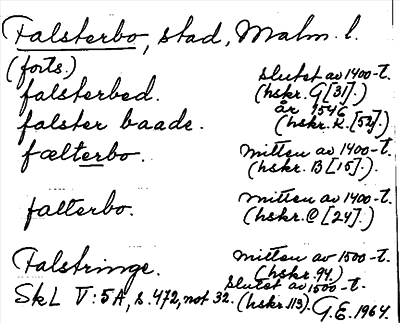 Falsterbo, stad, Malm. l.
(forts.)
falsterbed. slutet av 1400-t. (hskr. G [31].)
falster baade. år 1546 (hskr. K. [52].)
fælterbo. mitten av 1400-t. (hskr. B [15].)
falterbo. mitten av 1400-t. (hskr. C [24].)
Falstringe. mitten av 1500-t. (hskr. 94.)
slutet av 1500-t. (hskr. 113).
SkL V: 5A, s. 472, not 32. G.E. 1964.